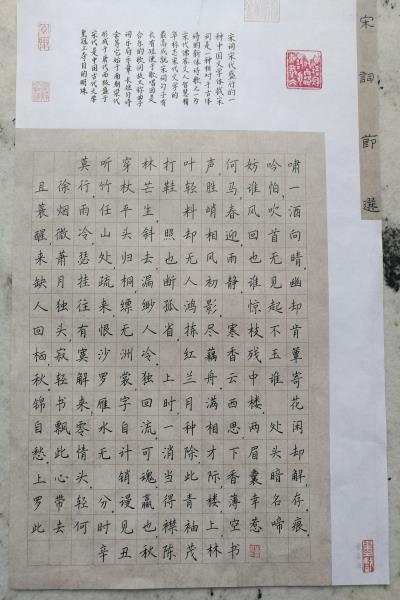 宋詞節選
宋词宋代盛行的一
种中国文学体裁宋
词是一种相对于古体
诗的新体诗歌之一为
宋代儒客文人智慧精
华标志宋代文学的
最高成就宋词句子有
长有短便于歌唱因是
合乐的歌词故又称曲子
词乐府乐章长短句诗
余等它始于南朝梁代
形成于唐代而极盛于
宋代是中国古代文学
皇冠上夺目的明珠
莫听穿林打叶声何妨吟啸
且徐行竹杖芒鞋轻胜马谁怕一
蓑烟雨任平生料峭春风吹酒
醒微冷山头斜照却相迎回首向
来萧瑟处归去也无风雨也无晴
缺月挂疏桐漏断人初静谁见幽
人独往来缥缈孤鸿影惊起却
回头有恨无人省拣尽寒枝不肯
栖寂寞沙洲冷红藕香残玉簟
秋轻解罗裳独上兰舟云中谁寄
锦书来雁字回时月满西楼花
自飘零水自流一种相思两处闲
愁此情无计可消除才下眉头却
上心头销魂当此际香囊暗解
罗带轻分谩赢得青楼薄幸名存
此去何时见也襟袖上空惹啼痕
辛丑秋陈茂林书